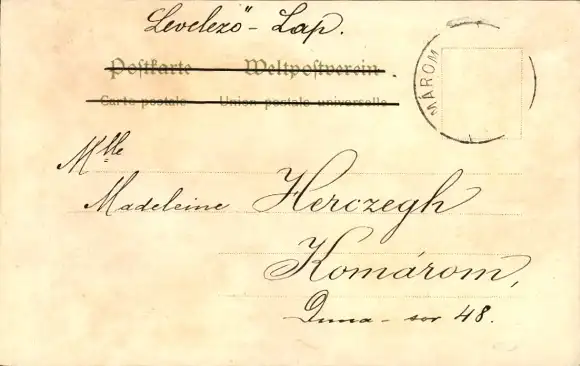 Levelező - Lap.
Postkarte Weltpostverein.
Carte postale Union postale universelle
MÁROM
Mlle
Madeleine Herczegh
Komárom,
Duna - sor 48.